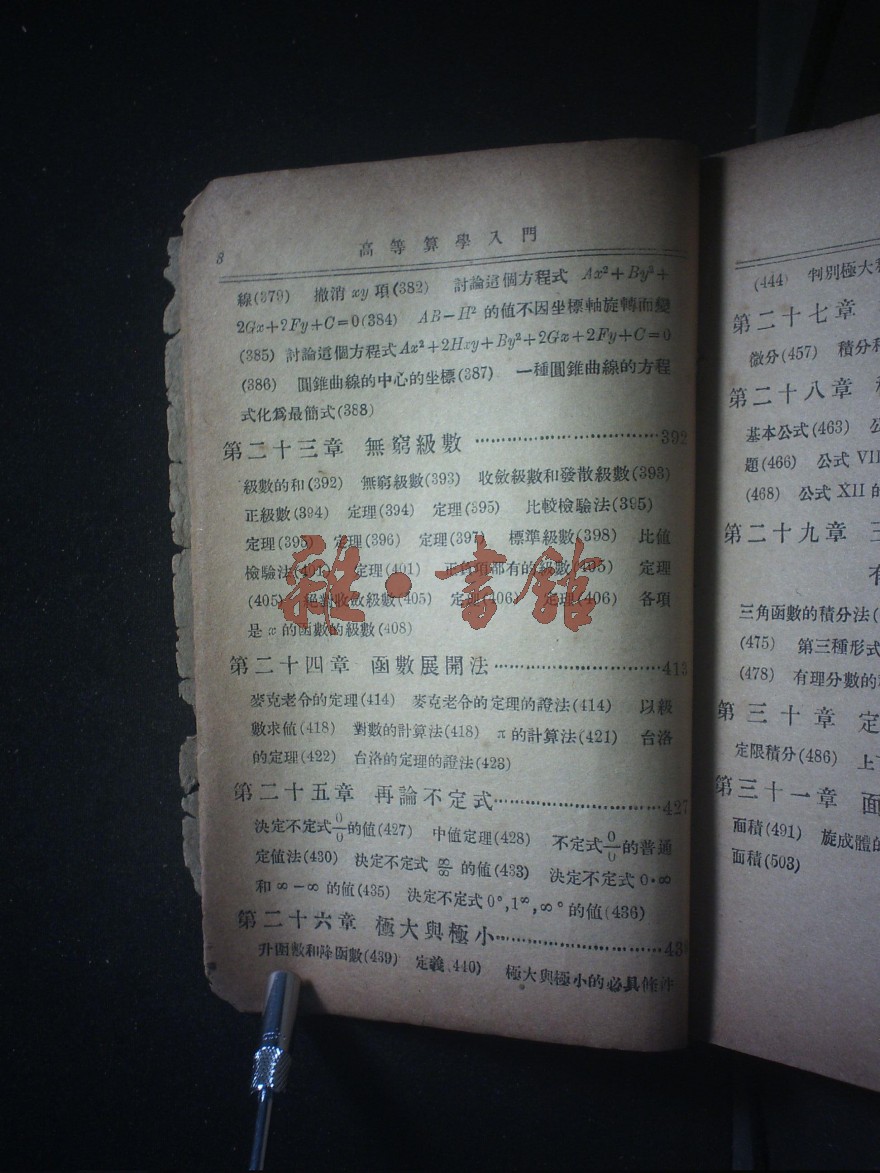 8
高等算學入門
線(379) 撤消 xy 項(382) 討論這個方程式 Ax²+By²+
2Gx+2Fy+C=0(384) AB−H² 的值不因坐標軸旋轉而變
(385) 討論這個方程式 Ax²+2Hxy+By²+2Gx+2Fy+C=0
(386) 圓錐曲線的中心的坐標(387) 一種圓錐曲線的方程
式化爲最簡式(388)
第二十三章 無窮級數 ⋯⋯⋯⋯ 392
級數的和(392) 無窮級數(393) 收斂級數和發散級數(393)
正級數(394) 定理(394) 定理(395) 比較檢驗法(395)
定理(395) 定理(396) 定理(397) 標準級數(398) 比值
檢驗法(401) 定理(401) 正負項都有的級數(405) 定理
(405) 絕對收斂級數(405) 定理(406) 定理(406) 各項
是 x 的函數的級數(408)
第二十四章 函數展開法 ⋯⋯⋯⋯ 413
麥克老令的定理(414) 麥克老令的定理的證法(414) 以級
數求値(418) 對數的計算法(418) π 的計算法(421) 台洛
的定理(422) 台洛的定理的證法(423)
第二十五章 再論不定式 ⋯⋯⋯⋯ 427
決定不定式 0/0 的值(427) 中值定理(428) 不定式 0/0 的普通
定值法(430) 決定不定式 ∞/∞ 的值(433) 決定不定式 0·∞
和 ∞−∞ 的值(435) 決定不定式 0°,1^∞,∞° 的值(436)
第二十六章 極大與極小 ⋯⋯⋯⋯ 43
升函數和降函數(439) 定義(440) 極大與極小的必具條件
雜·書館
(444) 判別極大
第二十七章
微分(457) 積分
第二十八章
基本公式(463)
題(466) 公式 VII
(468) 公式 XII 的
第二十九章 三
有
三角函數的積分法(
(475) 第三種形式
(478) 有理分數的
第三十章 定
定限積分(486) 上
第三十一章 面
面積(491) 旋成體的
面積(503)